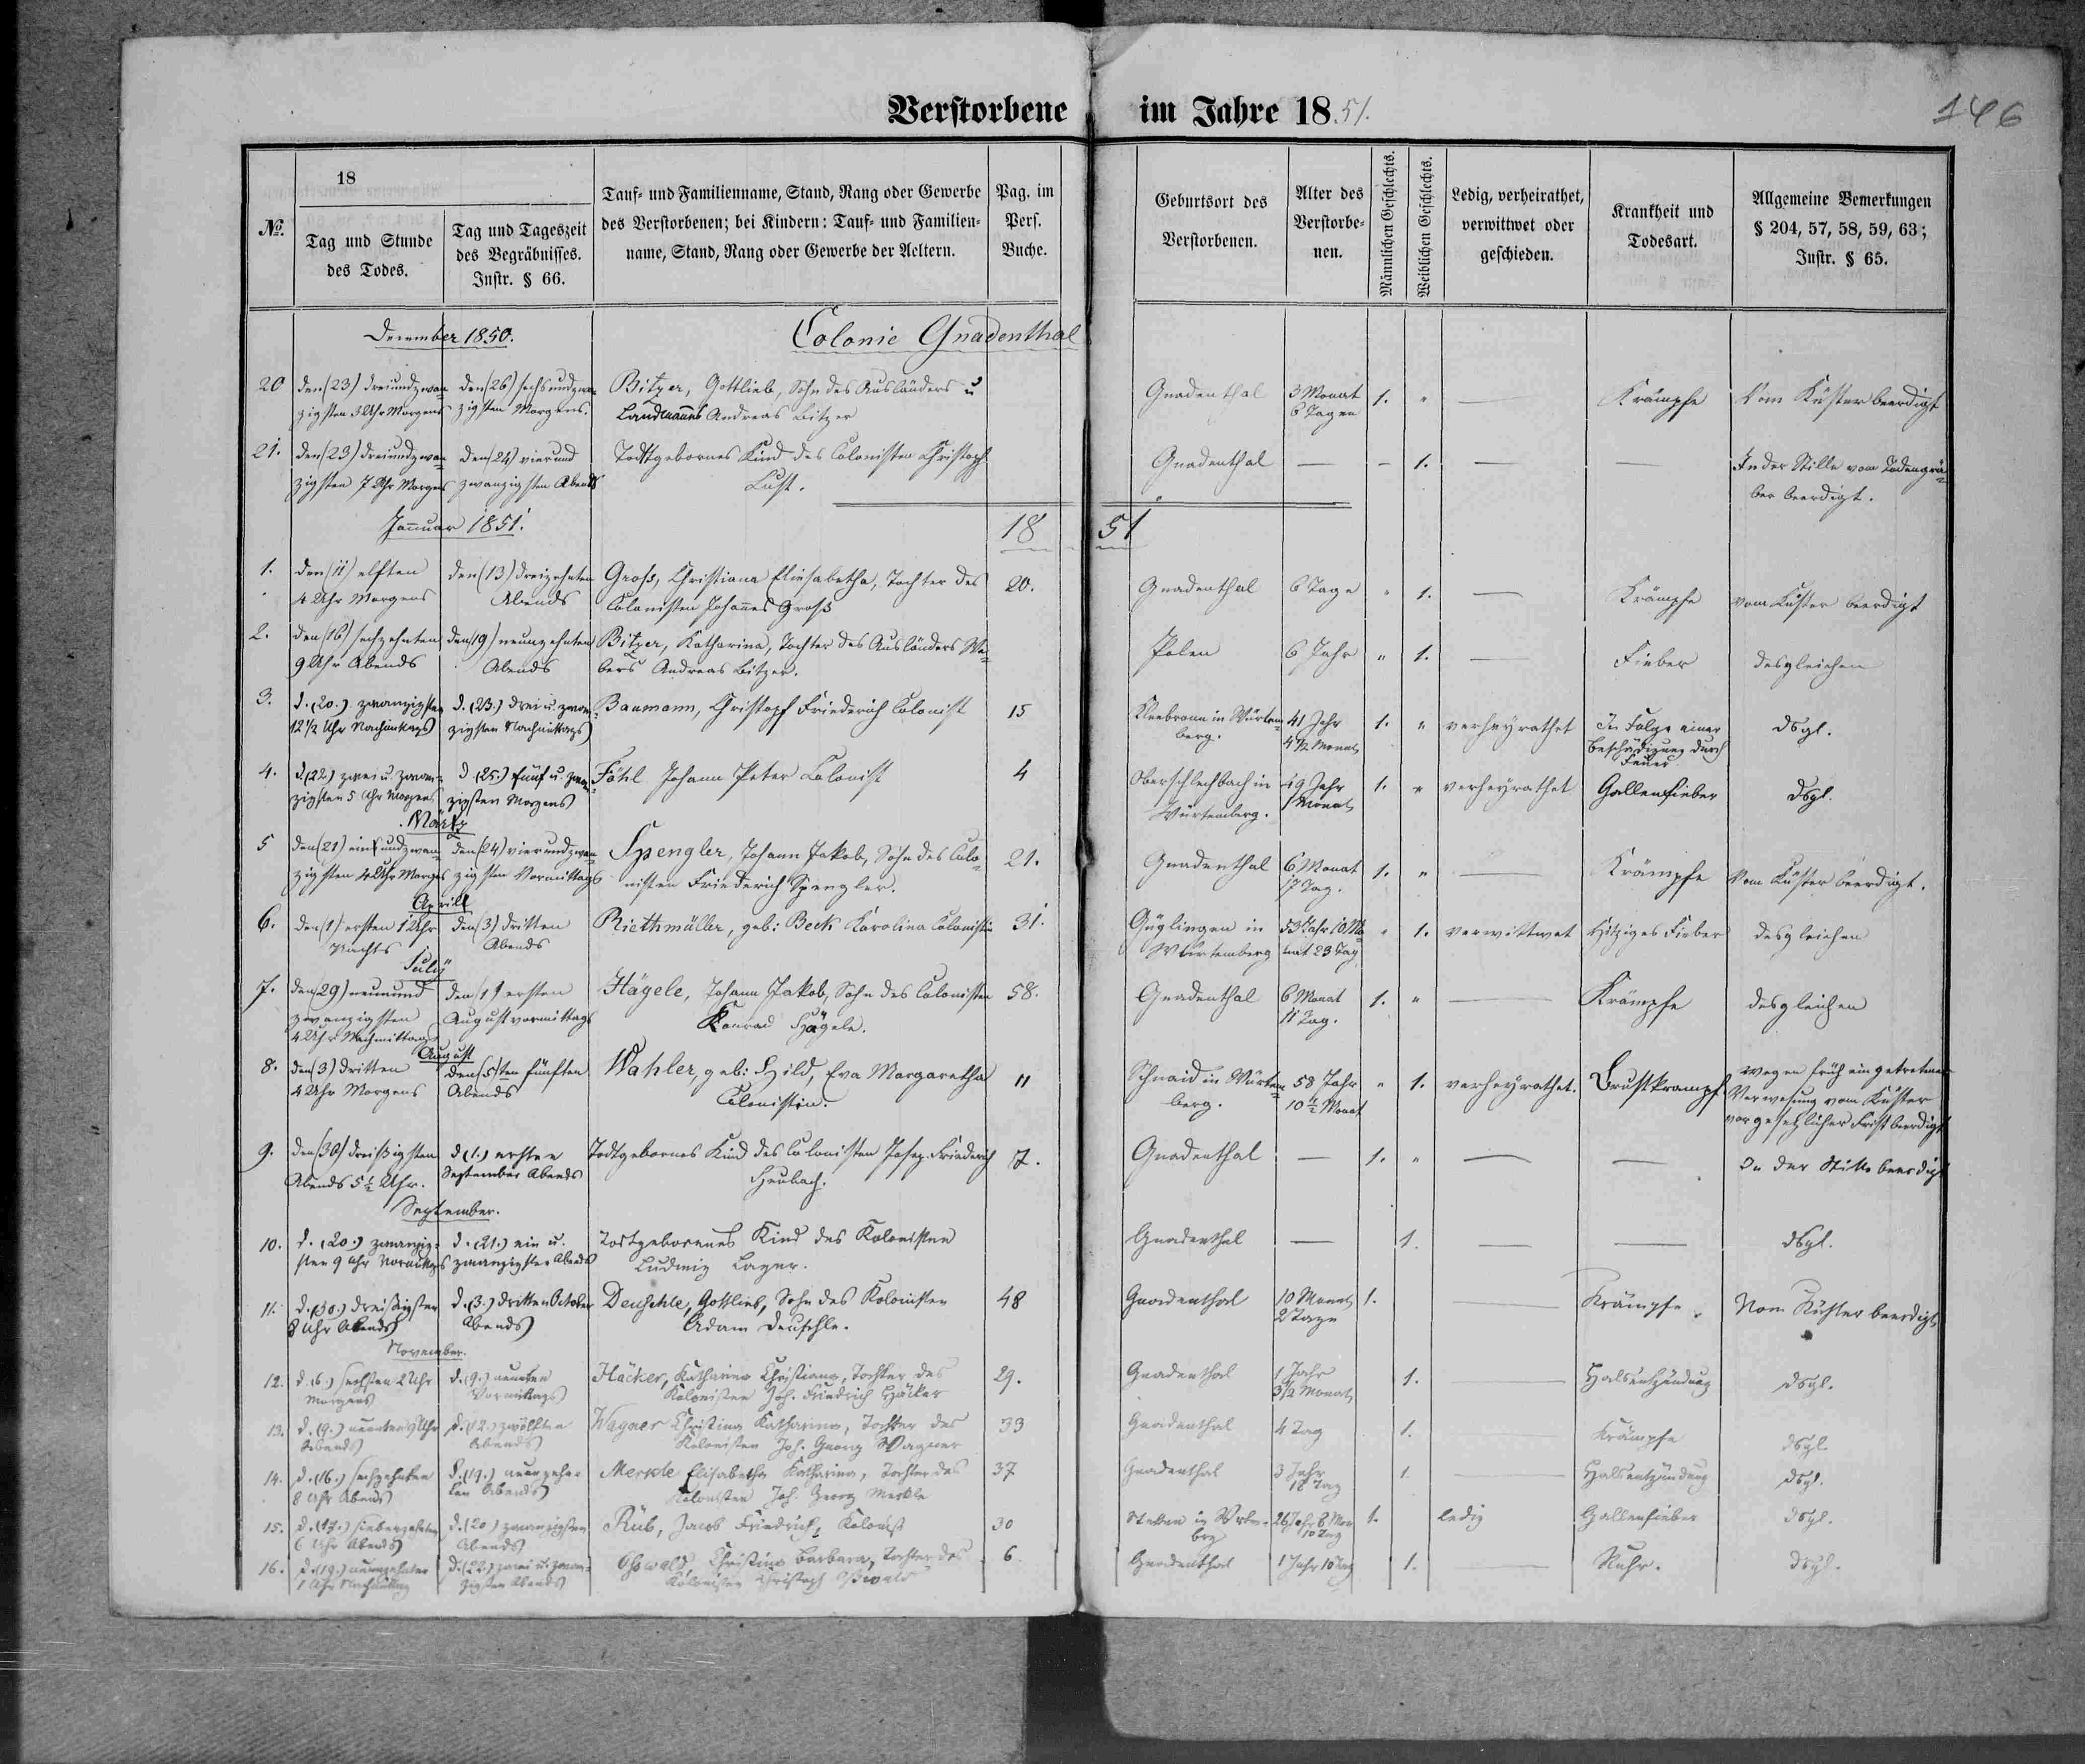 Verstorbene im Jahre 1851.
146
№.
18
Tag und Stunde
des Todes.
Tag und Tageszeit
des Begräbnisses.
Instr. § 66.
Tauf- und Familienname, Stand, Rang oder Gewerbe
des Verstorbenen; bei Kindern: Tauf- und Familien-
name, Stand, Rang oder Gewerbe der Aeltern.
Pag. im
Pers.
Buche.
Geburtsort des
Verstorbenen.
Alter des
Verstorbe-
nen.
Männlichen Geschlechts.
Weiblichen Geschlechts.
Ledig, verheirathet,
verwittwet oder
geschieden.
Krankheit und
Todesart.
Allgemeine Bemerkungen
§ 204, 57, 58, 59, 63;
Instr. § 65.
December 1850.
Colonie Gnadenthal
20 den (23) dreiundzwan- den (26) sechsundzwan- Bitzer, Gottlieb, Sohn des Ausländers u Gnadenthal 3 Monat 1. " — Krämpfe Vom Küster beerdigt
zigsten 3 Uhr Morgens zigsten Morgens. Landmanns Andreas Bitzer 6 Tagen
21. den (23) dreiundzwan- den (24) vierund Todtgebornes Kind des Colonisten Christoph Gnadenthal — - 1. — — In der Stille vom Todengrä-
zigsten 7 Uhr Morgens zwanzigsten Abends Lust. ber beerdigt.
Januar 1851.
18 51
1. den (11) elften den (13) dreizehnten Groß, Christiana Eliesabetha, Tochter des 20. Gnadenthal 6 Tage " 1. — Krämpfe vom Küster beerdigt
4 Uhr Morgens Abends Colonisten Johannes Groß
2. den (16) sechzehnten den (19) neunzehnten Bitzer, Katharina, Tochter des Ausländers We- Polen 6 Jahr " 1. — Fieber desgleichen
9 Uhr Abends Abends bers Andreas Bitzer.
3. d. (20.) zwanzigsten d. (23.) drei u. zwan- Baumann, Christoph Friederich Colonist 15 Kleebronn in Würtem- 41 Jahr 1. " verheyrathet In Folge einer dsgl.
12 1/2 Uhr Nachmittags zigsten Nachmittags berg. 4 1/2 Monat Beschädigung durch
Feuer
4. d (22.) zwei u. zwan- d. (25.) fünf u. zwan- Föhl Johann Peter Colonist 4 Oberschlechbach in 49 Jahr 1. " verheyrathet Gallenfieber dsgl.
zigsten 5 Uhr Morgens zigsten Morgens Würtemberg. 1 Monat
März
5 den (21) einundzwan- den (24) vierundzwan- Spengler, Johann Jakob, Sohn des Colo- 21. Gnadenthal 6 Monat 1. " — Krämpfe Vom Küster beerdigt.
zigsten 4 Uhr Morgens zigsten Vormittags nisten Friederich Spengler. 17 Tag.
April
6. den (1) ersten 1 Uhr den (3) dritten Riethmüller, geb: Beck Karolina Colonistin 31. Güglingen in 53 Jahr 10 Mo- " 1. verwittwet Hitziges Fieber desgleichen
Nachts Abends Würtemberg nat 23 Tag
July
7. den (29) neunund den (1) ersten Hägele, Johann Jakob, Sohn des Colonisten 58. Gnadenthal 6 Monat 1. " — Krämpfe desgleichen
zwanzigsten August vormittags Konrad Hägele. 11 Tag.
4 Uhr Nachmittags
August
8. den (3) dritten den (5)ten fünften Wahler, geb: Hild, Eva Margaretha 11 Schnaid in Würtem- 58 Jahr " 1. verheyrathet. Brustkrampf. wegen früh eingetretener
4 Uhr Morgens Abends Colonistin. berg. 10 1/2 Monat Verwesung vom Küster
vor gesetzlicher Frist beerdigt
9. den (30) dreißigsten d (1.) ersten Todtgebornes Kind des Colonisten Joseph Friederich 7. Gnadenthal — 1. " — — In der Stille beerdigt
Abends 5 1/2 Uhr. September Abends Heubach.
September.
10. d. (20.) zwanzig- d. (21.) ein u. Todtgeborenes Kind des Kolonisten Gnadenthal — 1. — — dsgl.
sten 9 Uhr Vormittags zwanzigsten Abends Ludwig Layer.
11. d. (30.) dreißigsten d. (3.) dritten October Deuschle, Gottlieb, Sohn des Kolonisten 48 Gnadenthal 10 Monat 1. — Krämpfe. Vom Küster beerdigt
8 Uhr Abends Abends Adam Deuschle. 2 Tage
November.
12. d. (6.) sechsten 2 Uhr d. (9.) neunten Häcker, Katharina Christiana, Tochter des 29. Gnadenthal 1 Jahr 1. — Halsentzündung dsgl.
Morgens Vormittags Kolonisten Joh. Friedrich Häcker 3 1/2 Monat
13. d. (9.) neunten Uhr d. (12.) zwölften Wagner Christina Katharina, Tochter des 33 Gnadenthal 4 Tag 1. — Krämpfe dsgl.
Abends Abends Kolonisten Joh. Georg Wagner
14. d. (16.) sechzehnten d. (19.) neunzehn- Merkle Elisabetha Katharina, Tochter des 37 Gnadenthal 3 Jahr 1. — Halsentzündung dsgl.
8 Uhr Abends ten Abends Kolonisten Joh. Georg Merkle 18 Tag
15. d. (17.) siebenzehnten d. (20) zwanzigsten Rüb, Jacob Friedrich, Kolonist 30 Stetten in Wrtm- 26 Jahr 8 Mon 1. ledig Gallenfieber dsgl.
6 Uhr Abends Abends brg 10 Tag
16. d. (19.) neunzehnten d. (22.) zwei u. zwan- Oßwald Christina Barbara, Tochter des 6 Gnadenthal 1 Jahr 10 Tag 1. — Ruhr. dsgl.
1 Uhr Nachmittag zigsten Abends Kolonisten Christoph Oßwald